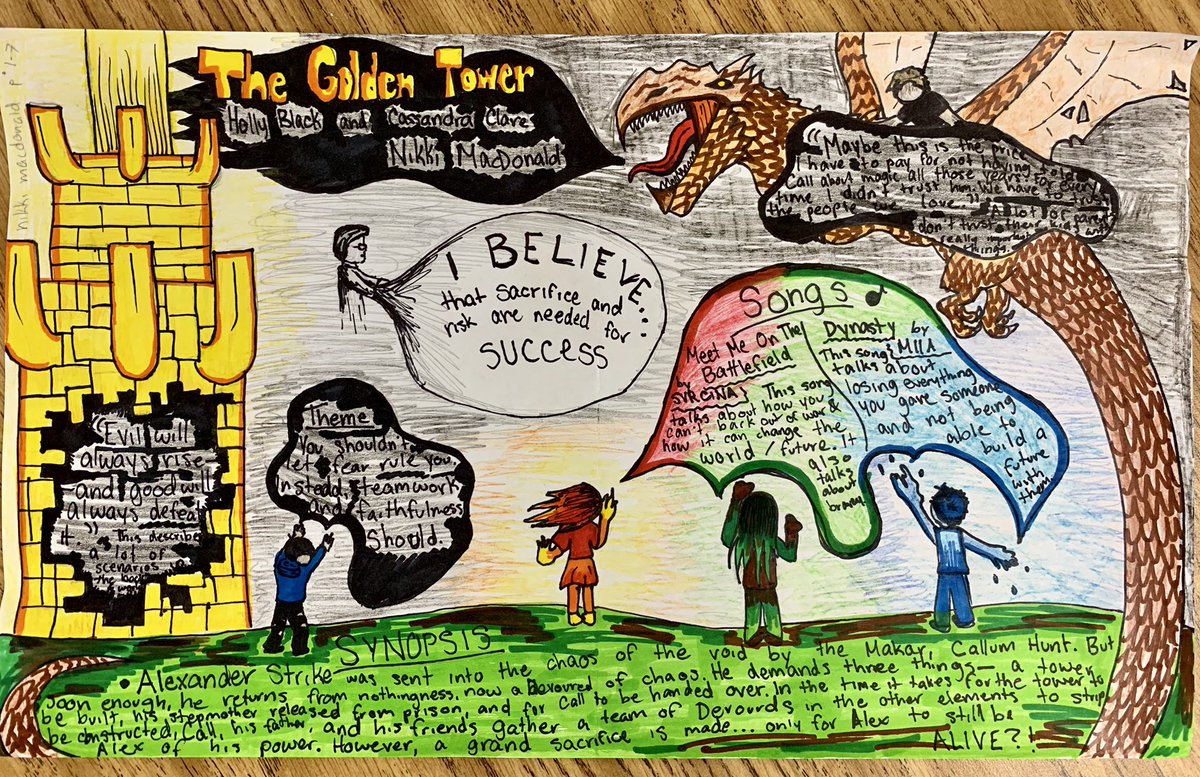 nikki macdonald p°1-7
The Golden Tower
Holly Black and Cassandra Clare
Nikki MacDonald
"Maybe this is the price
I have to pay for not having told
Call about magic all those years. For every
time I didn't trust him. We have to trust
the people we love." A lot of parents
don't trust their kids with
really important
things.
I BELIEVE...
that sacrifice and
risk are needed for
SUCCESS
Songs
Meet Me On The
Battlefield
by
SVRCINA This song
talks about how you
can't back out of war &
how it can change the
world/future. It
also
talks
about
bravery
Dynasty by
MIIA
This song
talks about
losing everything
you gave someone
and not being
able to
build a
future
with
them
Theme
You shouldn't
let fear rule you
Instead, teamwork
and faithfulness
should.
"Evil will
always rise
and good will
always defeat
it." This describes
a lot of
scenarios
the book
SYNOPSIS
• Alexander Strike was sent into the chaos of the void by the Makar, Callum Hunt. But
soon enough, he returns from nothingness, now a Devoured of chaos. He demands three things— a tower to
be built, his stepmother released from prison, and for Call to be handed over. In the time it takes for the tower to
be constructed, Call, his father, and his friends gather a team of Devourds in the other elements to strip
Alex of his power. However, a grand sacrifice is made... only for Alex to still be
ALIVE?!